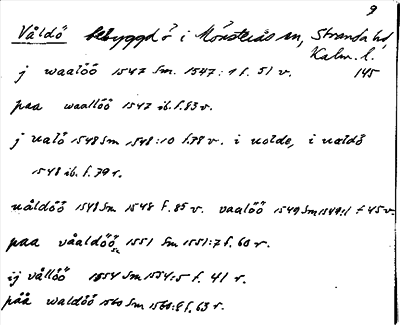 9
Våldö bebyggd ö i Mönsterås sn, Stranda hd,
Kalm. l.
j waalöö 1547 Sm. 1547:1 f. 51 v. 145
paa waallöö 1547 ib. f. 53 v.
j ualö 1548 Sm 1548:10 f. 78 v. i uolde, i ualdö
1548 ib. f. 79 r.
uåldöö 1548 Sm 1548 f. 85 v. vaalöö 1549 Sm 1549:1 f 45 v.
paa våaldöö 1551 Sm 1551:7 f. 60 r.
ij vållöö 1554 Sm 1554:5 f. 41 r.
påå waldöö 1560 Sm 1560: f. 63 r.